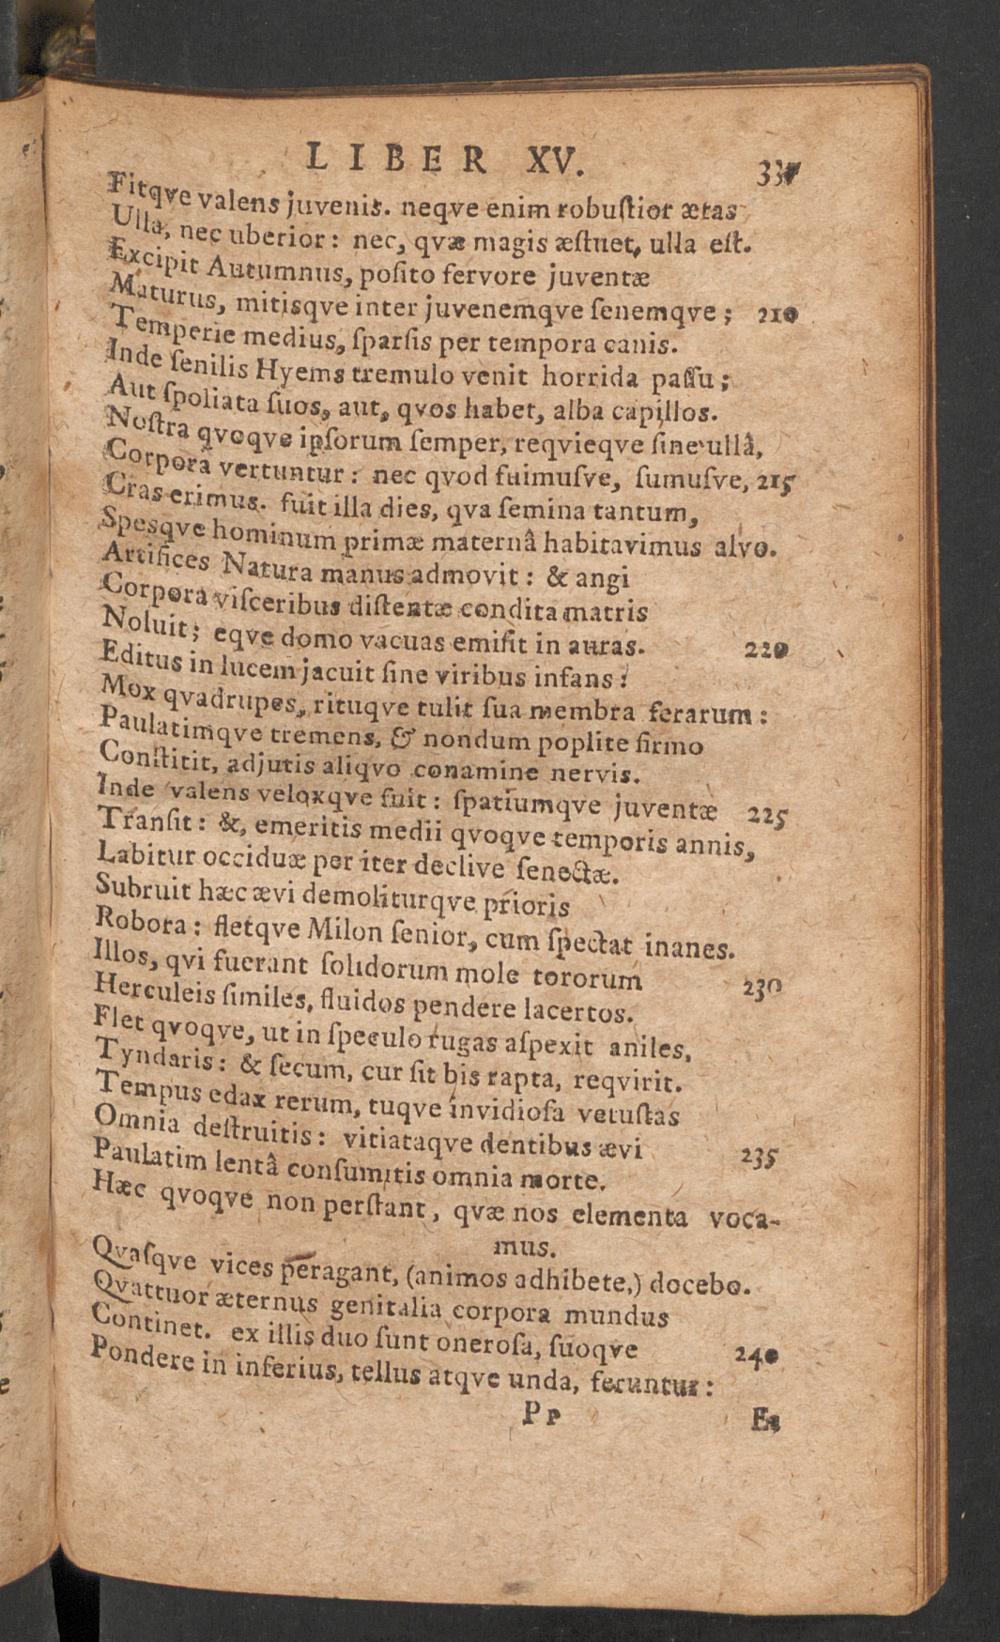 LIBER XV. 337
Fitqve valens juvenis. neqve enim robuſtior ætas
Ulla, nec uberior: nec, qvæ magis æſtuet, ulla eſt.
Excipit Autumnus, poſito fervore juventæ
Maturus, mitisqve inter juvenemqve ſenemqve; 210
Temperie medius, ſparſis per tempora canis.
Inde ſenilis Hyems tremulo venit horrida paſſu;
Aut ſpoliata ſuos, aut, qvos habet, alba capillos.
Noſtra qvoqve ipſorum ſemper, reqvieqve ſine ullâ,
Corpora vertuntur: nec qvod fuimuſve, ſumuſve, 215
Cras erimus. fuit illa dies, qva ſemina tantum,
Spesqve hominum primæ maternâ habitavimus alvo.
Artifices Natura manus admovit: & angi
Corpora viſceribus diſtentæ condita matris
Noluit; eqve domo vacuas emiſit in auras. 220
Editus in lucem jacuit ſine viribus infans:
Mox qvadrupes, rituqve tulit ſua membra ferarum:
Paulatimqve tremens, & nondum poplite firmo
Conſtitit, adjutis aliqvo conamine nervis.
Inde valens veloxqve fuit: ſpatiumqve juventæ 225
Tranſit: &, emeritis medii qvoqve temporis annis,
Labitur occiduæ per iter declive ſenectæ.
Subruit hæc ævi demoliturqve prioris
Robora: fletqve Milon ſenior, cum ſpectat inanes.
Illos, qvi fuerant ſolidorum mole tororum 230
Herculeis ſimiles, fluidos pendere lacertos.
Flet qvoqve, ut in ſpeculo rugas aſpexit aniles,
Tyndaris: & ſecum, cur ſit bis rapta, reqvirit.
Tempus edax rerum, tuqve invidioſa vetuſtas
Omnia deſtruitis: vitiataqve dentibus ævi 235
Paulatim lentâ conſumitis omnia morte.
Hæc qvoqve non perſtant, qvæ nos elementa voca-
mus.
Qvaſqve vices peragant, (animos adhibete,) docebo.
Qvattuor æternus genitalia corpora mundus
Continet. ex illis duo ſunt oneroſa, ſuoqve 240
Pondere in inferius, tellus atqve unda, feruntur:
Pp Et